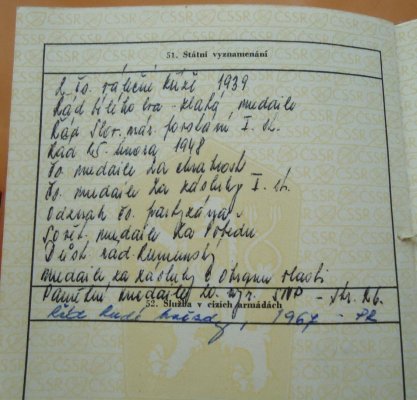 ČSSR ČSSR ČSSR ČSSR ČSSR
51. Státní vyznamenání
2. čs. válečný kříž 1939
Řád bílého lva - zlatá medaile
Řád Slov. nár. povstání I. st.
Řád 25. února 1948
Čs. medaile Za chrabrost
Čs. medaile Za zásluhy I. st.
Odznak čs. partyzána
Sovět. medaile Za Pobědu
Důst. řád Rumunský
Medaile za zásluhy o obranu vlasti
Pamětní medaile k výr. SNP -
52. Služba v cizích armádách
Řád Rudé hvězdy, 1967 - PR